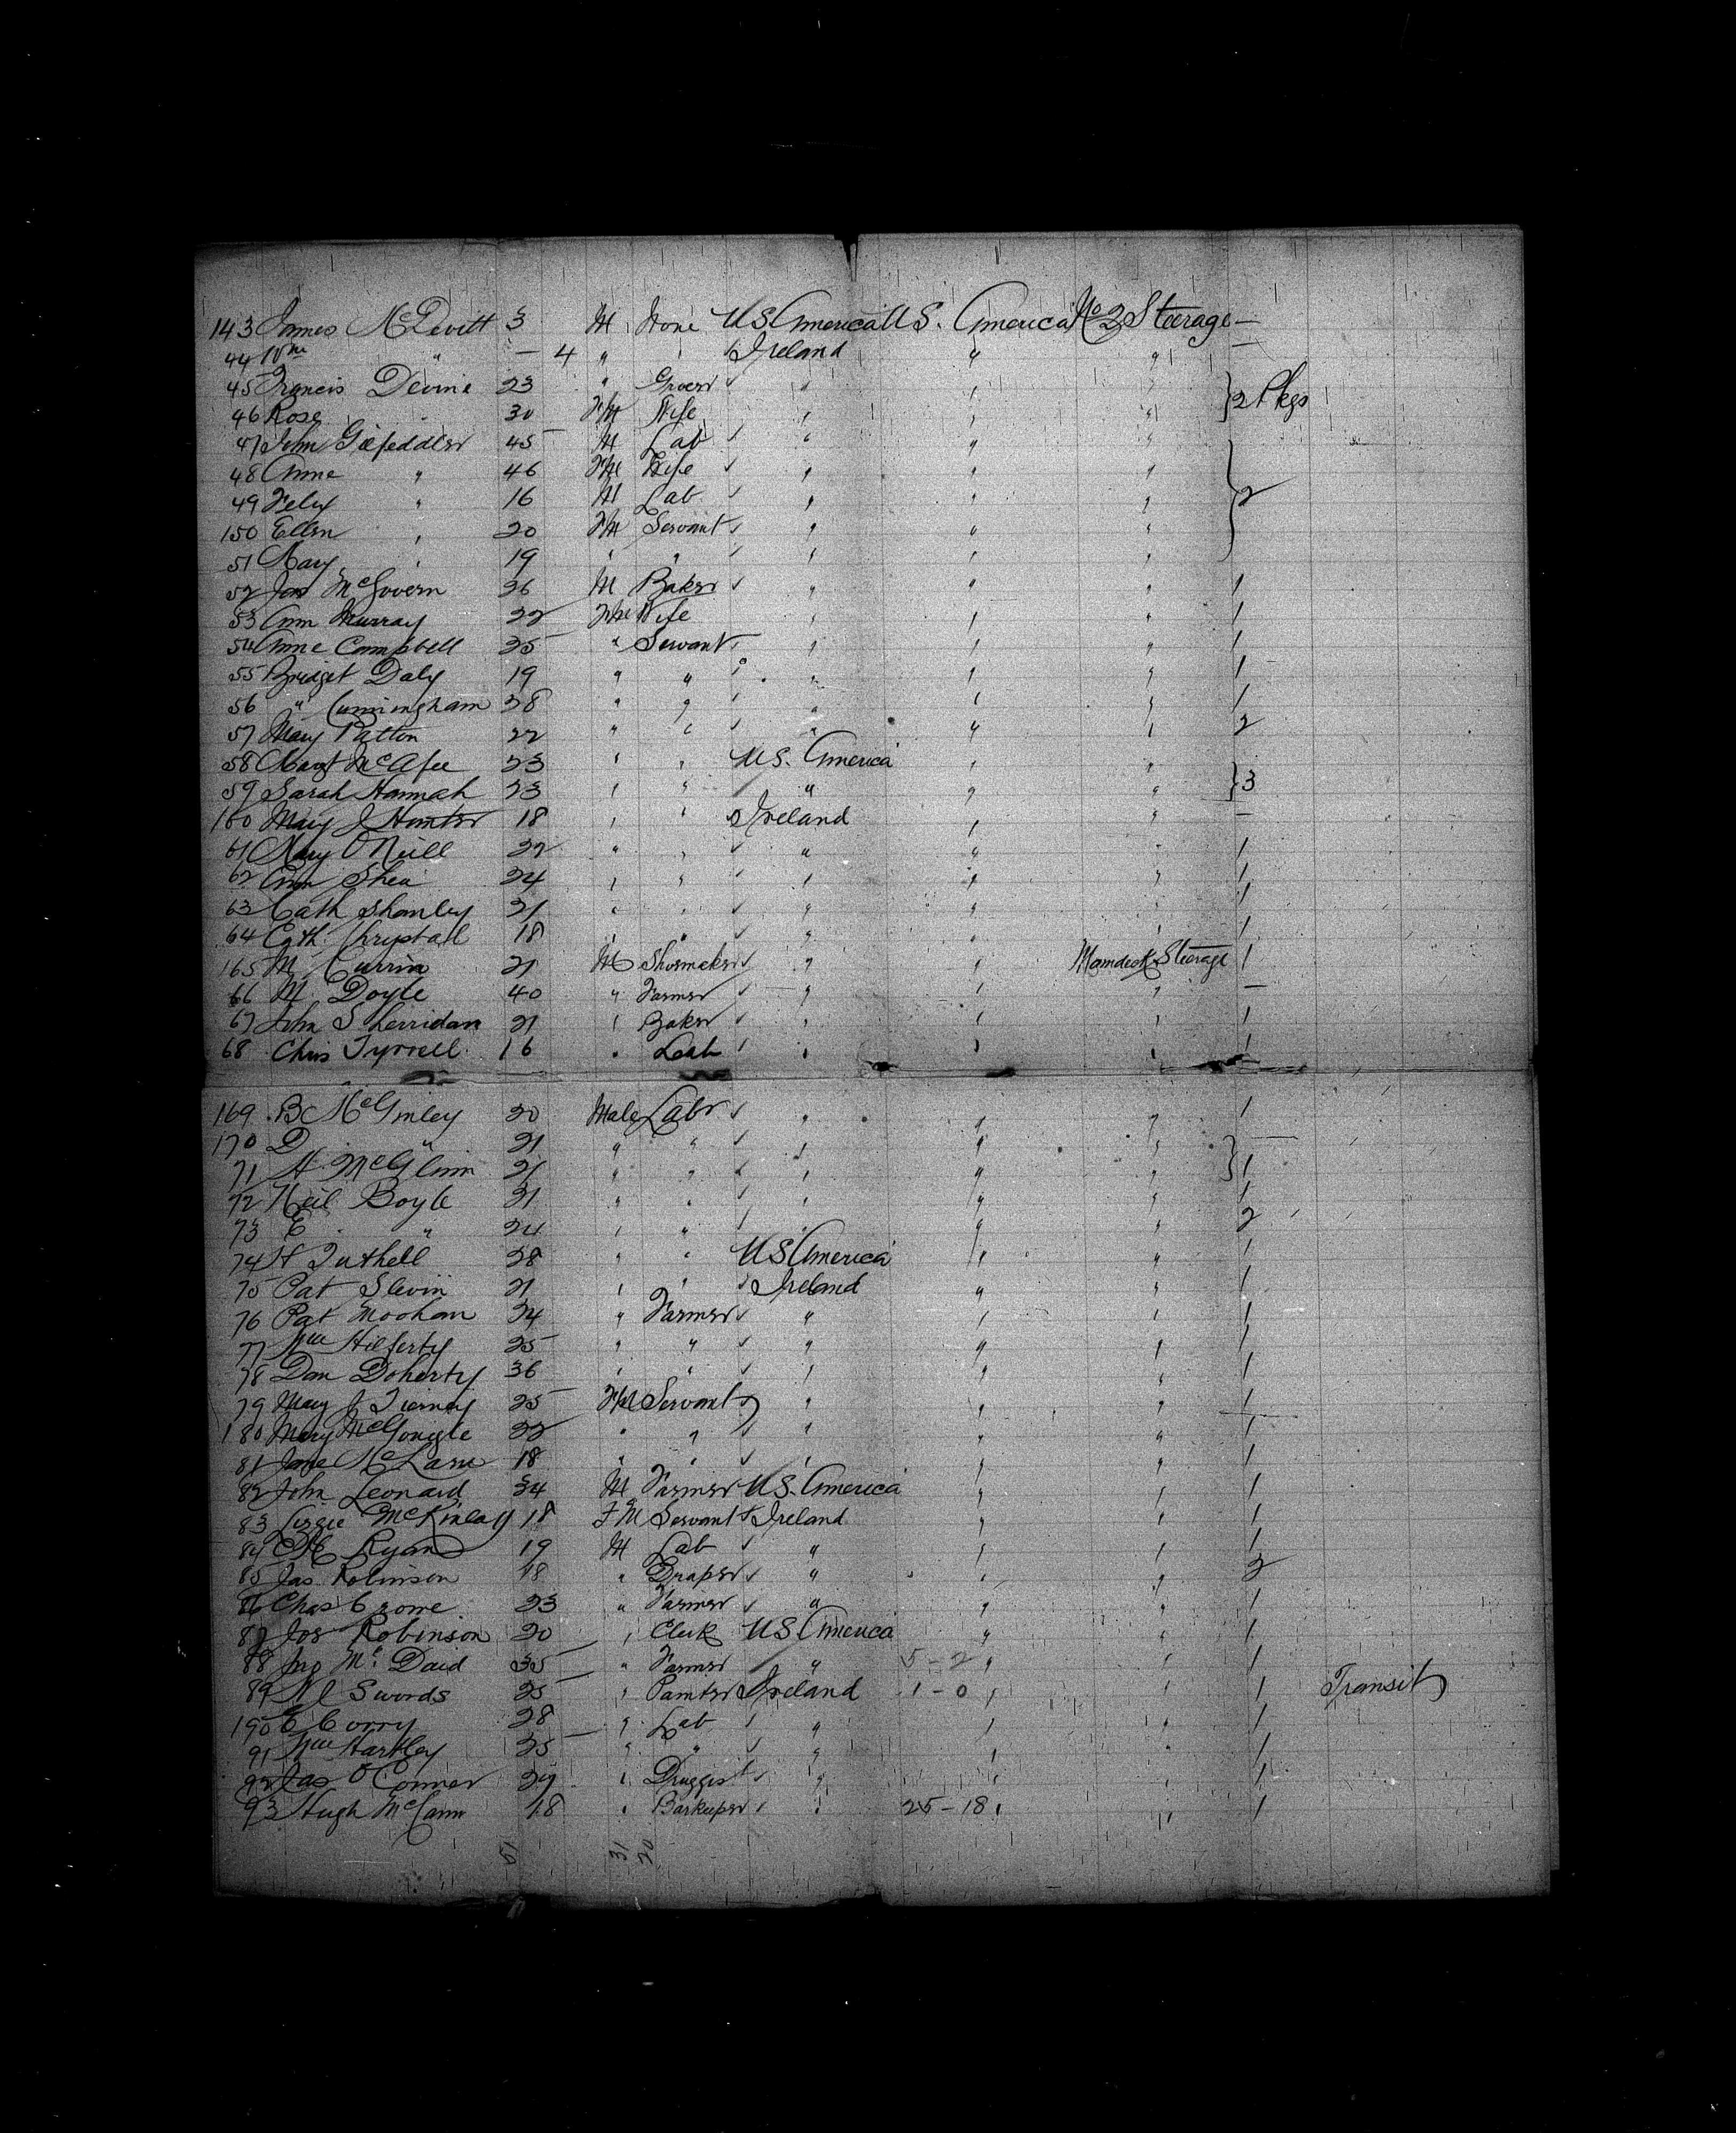 143 James McDevitt 3 M None US America U.S. America No 2 Steerage —
44 Wm " — 4 " " Ireland " "
45 Francis Devine 23 " Grocer " " " } 2 Pkgs
46 Rose " 30 FM Wife " " "
47 John 45 M Lab " " "
48 Anne " 46 FM Wife " " " } 2
49 Felix " 16 M Lab " " "
150 Ellen " 20 FM Servant " " "
51 Mary " 19 " " " " "
52 Jas McGovern 26 M Baker " " " 1
53 Ann Murray 22 FM Wife " " " 1
54 Anne Campbell 25 " Servant " " " 1
55 Bridget Daly 19 " " " " " 1
56 " Cunningham 28 " " " " " 1
57 Mary Patton 22 " " " " " 2
58 Margt McAfee 23 " " U.S. America " "
59 Sarah Hannah 23 " " " " " } 3
160 Mary J Hunter 18 " " Ireland " " —
61 Mary O'Neill 22 " " " " " 1
62 Ann Shea 24 " " " " " 1
63 Cath Shanley 21 " " " " " 1
64 Cath Chrystall 18 " " " " " 1
165 M Currin 21 M Shoemaker " " Maindeck Steerage 1
66 M Doyle 40 " Farmer " " " —
67 John Sherridan 21 " Baker " " " 1
68 Chris Tyrrell 16 " Lab " " " 1
169 B McGinley 20 Male Labr " " " 1
170 D " 21 " " " " "
71 H McGlinn 21 " " " " " } 1
72 Neil Boyle 31 " " " " " 1
73 E " 24 " " " " " 2
74 H Tuthell 28 " " US America " " 1
75 Pat Slevin 21 " " Ireland " " 1
76 Pat Moohan 24 " Farmer " " " 1
77 Wm Hilferty 25 " " " " " 1
78 Dan Doherty 36 " " " " " 1
79 Mary J Tierney 25 FM Servant " " " 1
180 Mary McGonigle 22 " " " " " 1
81 Jane 18 " " " " " 1
82 John Leonard 34 M Farmer U.S. America " " 1
83 Lizzie McKinlay 18 FM Servant Ireland " " 1
84 M Ryan 19 M Lab " " " 1
85 Jas Robinson 18 " Draper " " " 2
86 Chas Crone 23 " Farmer " " " 1
87 Jos Robinson 20 " Clerk US America " " 1
88 Jno McDaid 35 " Farmer " 5-2 " " 1
89 Swords 25 " Painter Ireland 1-0 " " 1 Transit
190 C Corry 28 " Lab " " " 1
91 Wm Hartley 25 " " " " " 1
92 Jas O'Conner 29 " Druggist " " " 1
93 Hugh McCann 18 " Barkeeper " 25-18 " " 1
51 31 20